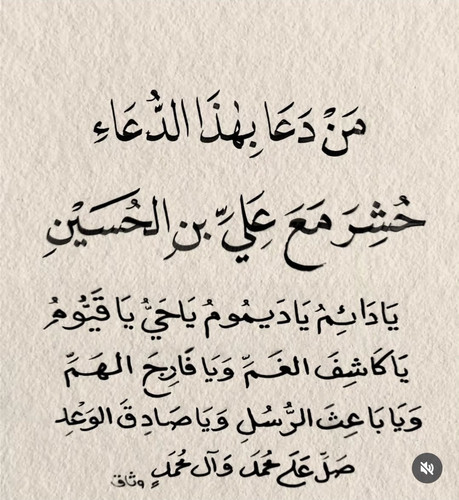 مَنْ دَعَا بِهٰذَا الدُّعَاءِ
حُشِرَ مَعَ عَلِيِّ بنِ الحُسَيْنِ
يَا دَائِمُ يَا دَيمُومُ يَا حَيُّ يَا قَيُّومُ
يَا كَاشِفَ الغَمِّ وَيَا فَارِجَ الهَمِّ
وَيَا بَاعِثَ الرُّسُلِ وَيَا صَادِقَ الوَعْدِ
صَلِّ عَلَى مُحَمَّدٍ وَآلِ مُحَمَّدٍ
وثاق